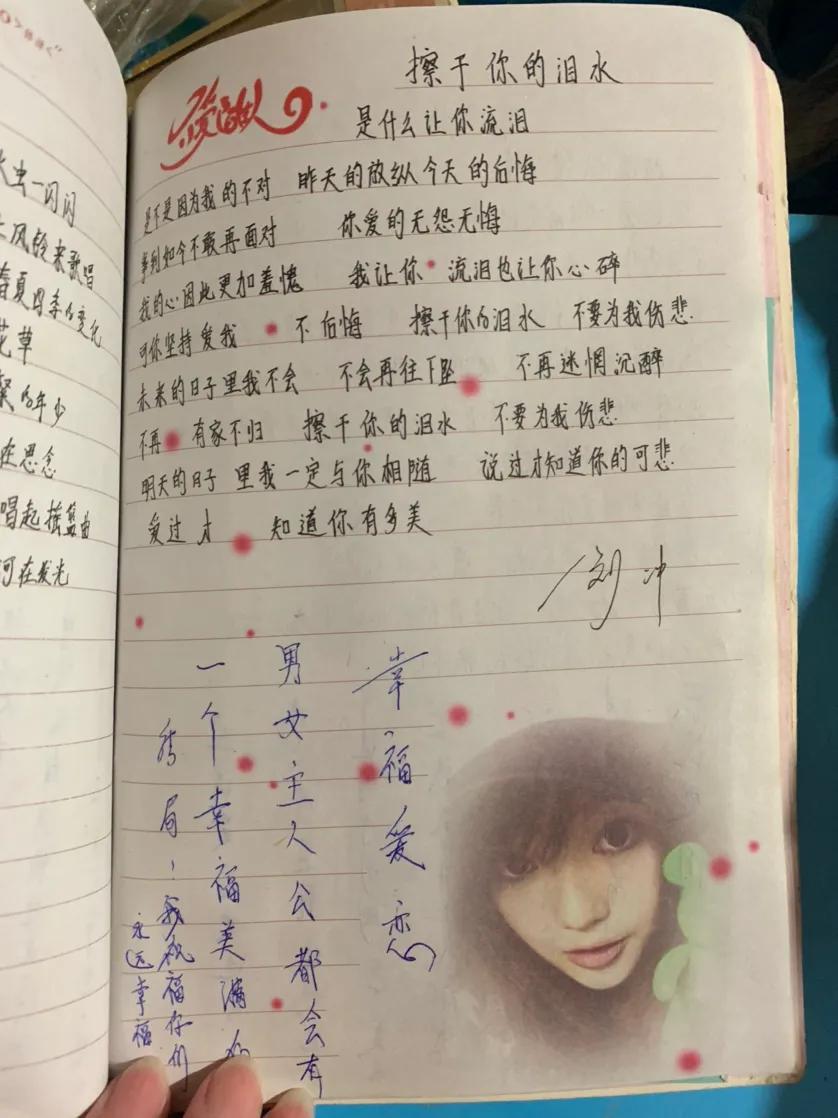 虫一闪闪
风铃来歌唱
春夏四季的变化
花草
的年少
在思念
唱起摇篮曲
河在发光
擦干你的泪水
是什么让你流泪
是不是因为我的不对 昨天的放纵今天的后悔
事到如今不敢再面对 你爱的无怨无悔
我的心因此更加羞愧 我让你 流泪也让你心碎
可你坚持爱我 不后悔 擦干你的泪水 不要为我伤悲
未来的日子里我不会 不会再往下坠 不再迷惘沉醉
不再 有家不归 擦干你的泪水 不要为我伤悲
明天的日子里我一定与你相随 说过才知道你的可悲
爱过才 知道你有多美
刘冲
幸福爱恋
男女主人公都会有
一个幸福美满的
结局，我祝福你们
永远幸福